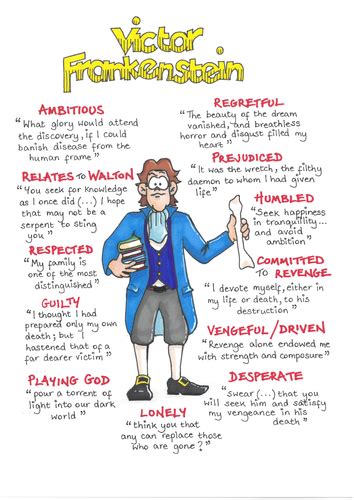 Victor
Frankenstein
AMBITIOUS
"What glory would attend
the discovery, if I could
banish disease from the
human frame"
RELATES TO WALTON
"You seek for knowledge
as I once did (...) I hope
that may not be a
serpent to sting
you"
RESPECTED
"My family is
one of the most
distinguished"
GUILTY
"I thought I had
prepared only my own
death; but I
hastened that of a
far dearer victim"
PLAYING GOD
"pour a torrent of
light into our dark
world"
LONELY
"think you that
any can replace those
who are gone?"
REGRETFUL
"The beauty of the dream
vanished, and breathless
horror and disgust filled my
heart"
PREJUDICED
"It was the wretch, the filthy
daemon to whom I had given
life"
HUMBLED
"Seek happiness
in tranquillity...
and avoid
ambition"
COMMITTED
TO REVENGE
"I devote myself, either in
my life or death, to his
destruction"
VENGEFUL/DRIVEN
"Revenge alone endowed me
with strength and composure"
DESPERATE
"swear (...) that you
will seek him and satisfy
my vengeance in his
death"